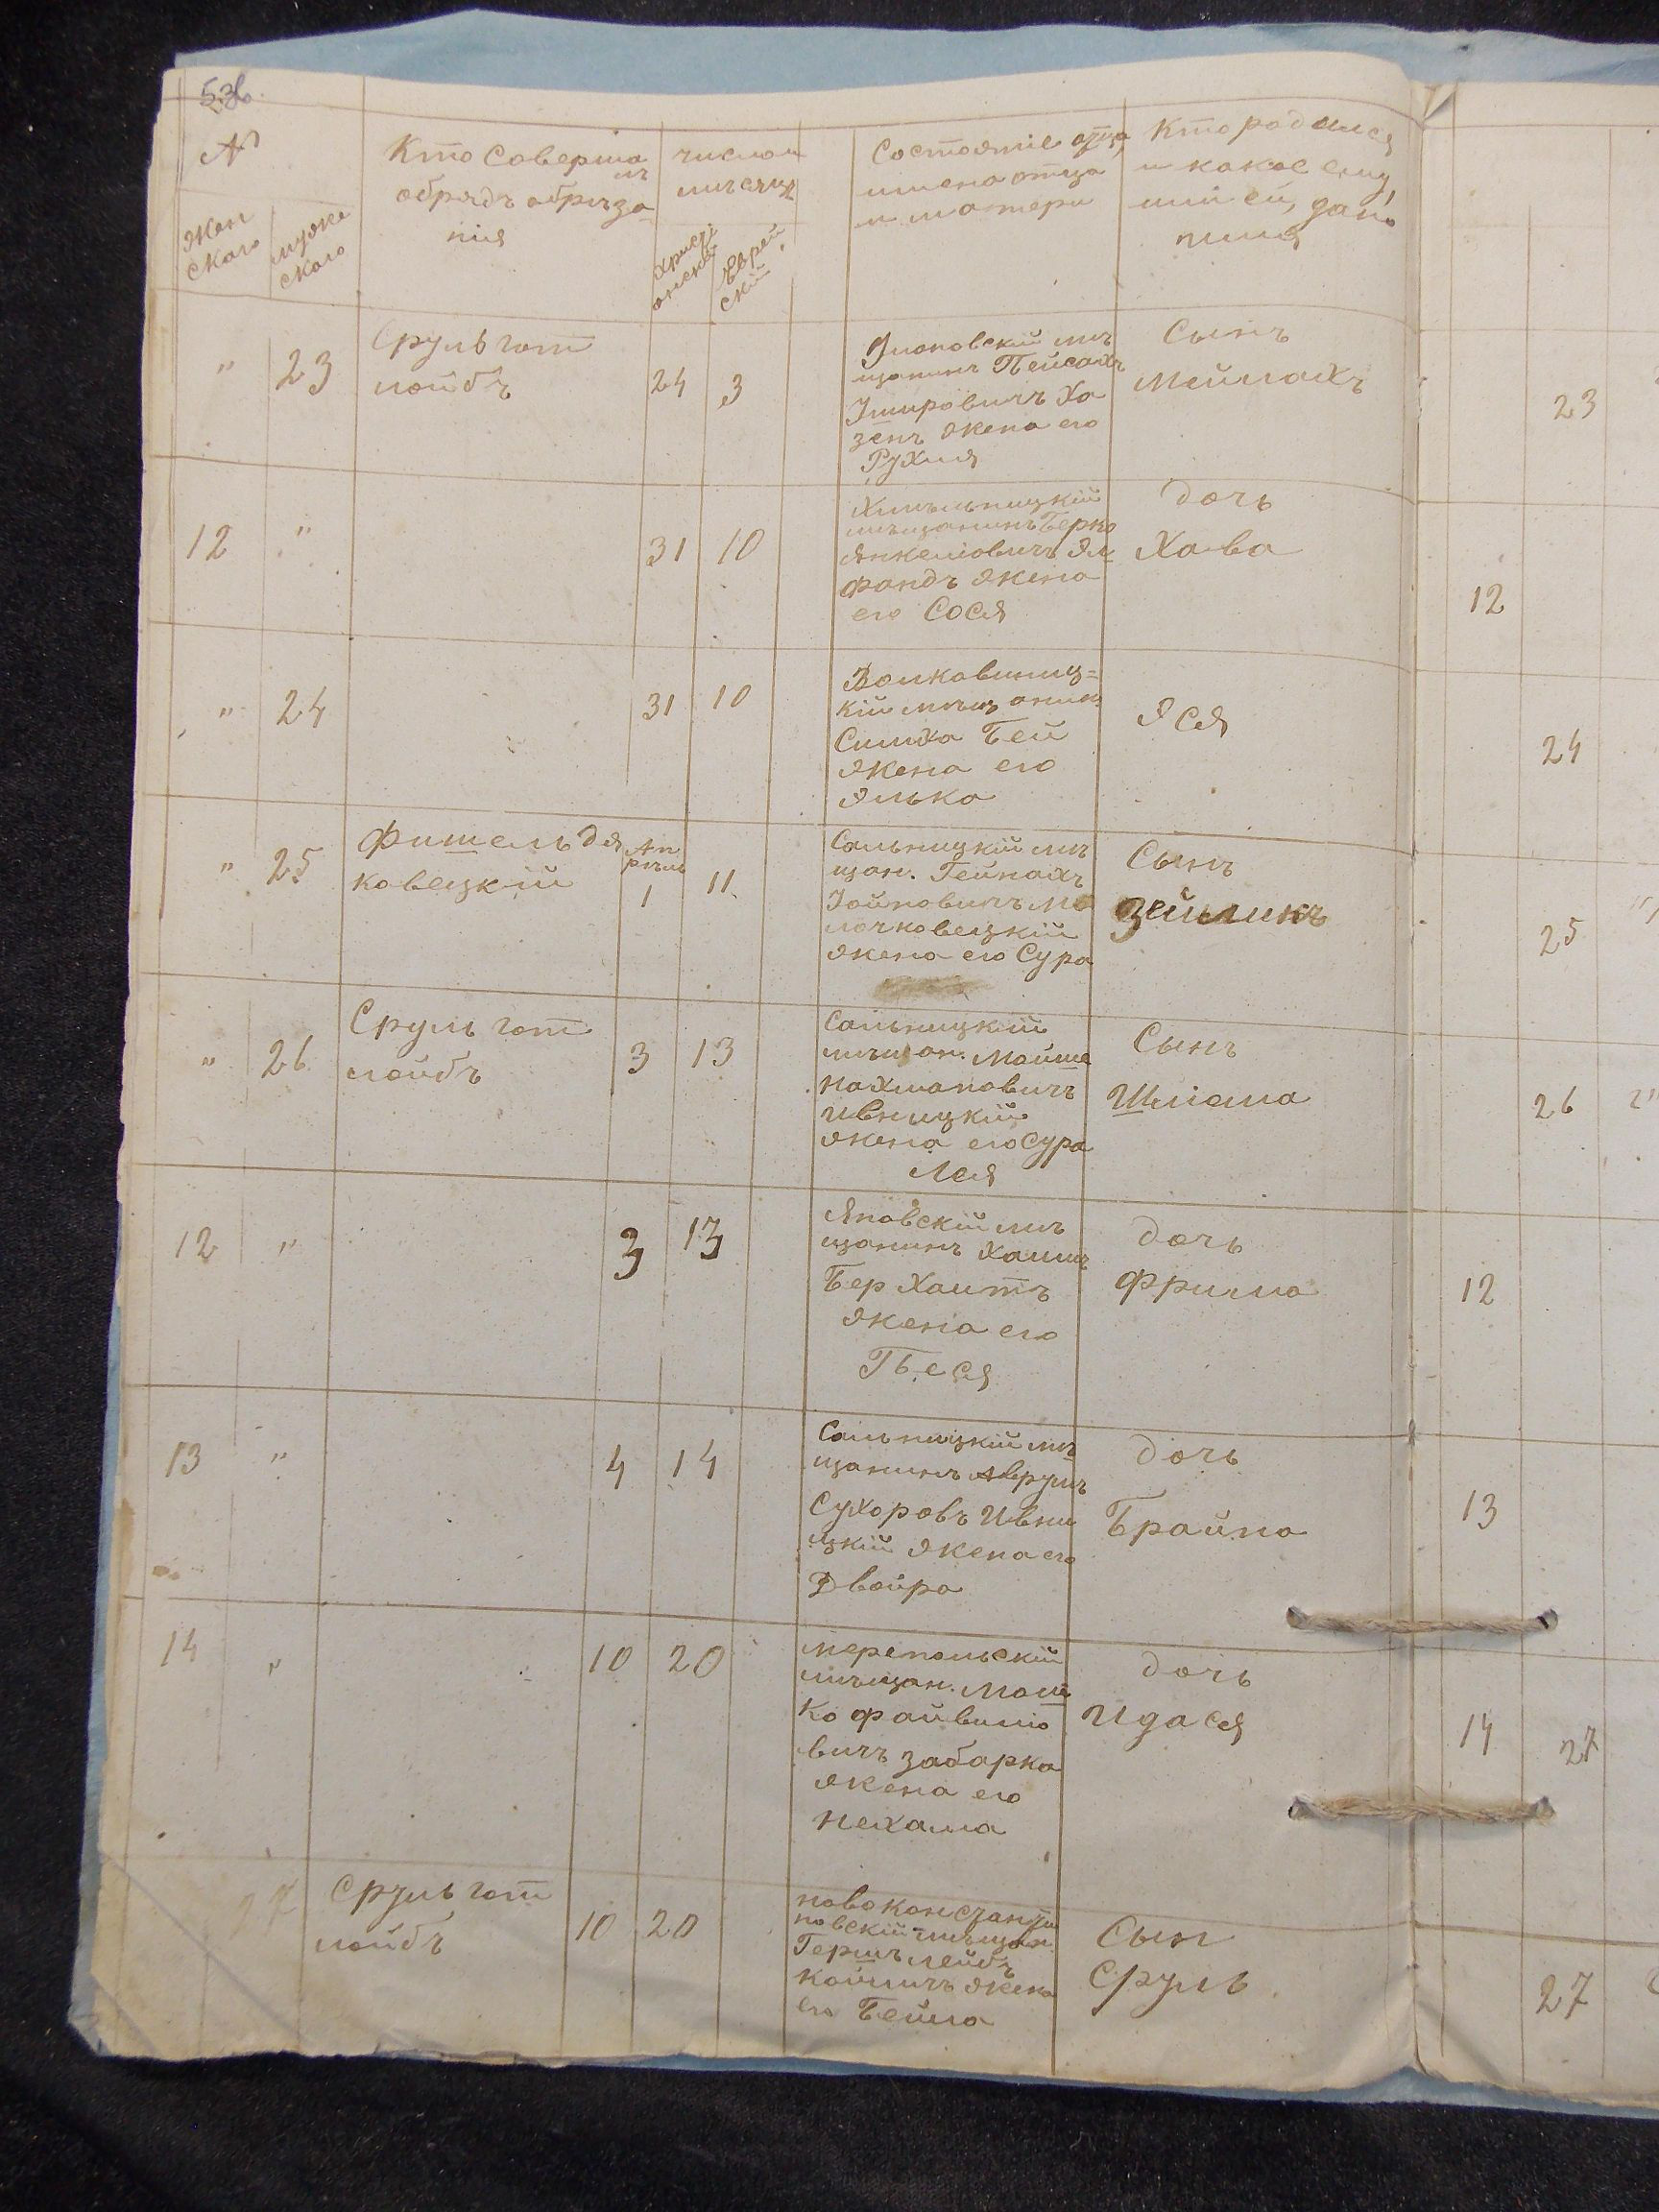 53
№
Жен
скаго
муже
скаго
Кто соверша
лъ
обрядъ обрѣза
нія
число и
мѣсяцъ
христі
анскій
Еврей
скій
Состояніе отца,
имена отца
и матери
Кто родился
и какое ему,
или ей, дано
имя
" 23
Сруль Гот
лойбъ
24 3
мѣ
щанинъ Пейсахъ
Ха
зенъ жена его
Рухля
Сынъ
Мейлахъ
12 "
31 10
Хмѣльницкій
мѣщанинъ Берко
Янкеліовичъ Эл
фандъ жена
его Сося
дочь
Хава
" 24
31 10
Волковинец=
кій мѣщанин
Симха Бей
жена его
Элька
Яся
" 25
Фишель Дя
ковецкій
Ап
рѣль
1 11
Сальницкій мѣ
щан. Гейнахъ
Іойновичъ Ма
лочковецкій
жена его Сура
Сынъ
Зейликъ
" 26
Сруль Гот
лойбъ
3 13
Сальницкій
мѣщан. Мойше
Нахмановичъ
Ивницкій
жена его Сура
Лея
Сынъ
Шліома
12 "
3 13
Яновскій мѣ
щанинъ Хаимъ
Бер Хаитъ
жена его
Песя
дочь
Фрима
13 "
4 14
Сальницкій мѣ
щанинъ Аврумъ
Сухоровъ Ивни
цкій жена его
Двойра
дочь
Брайна
14 "
10 20
Мерепольскій
мѣщан. Мош
ко Файвишо
вичъ Забарка
жена его
Нехама
дочь
Идася
27
Сруль Гот
лойбъ
10 20
новоконстанти
новскій мѣщан.
Гершъ Лейбъ
жена
его Бейла
Сын
Сруль
23
12
24
25
26
12
13
14 27
27